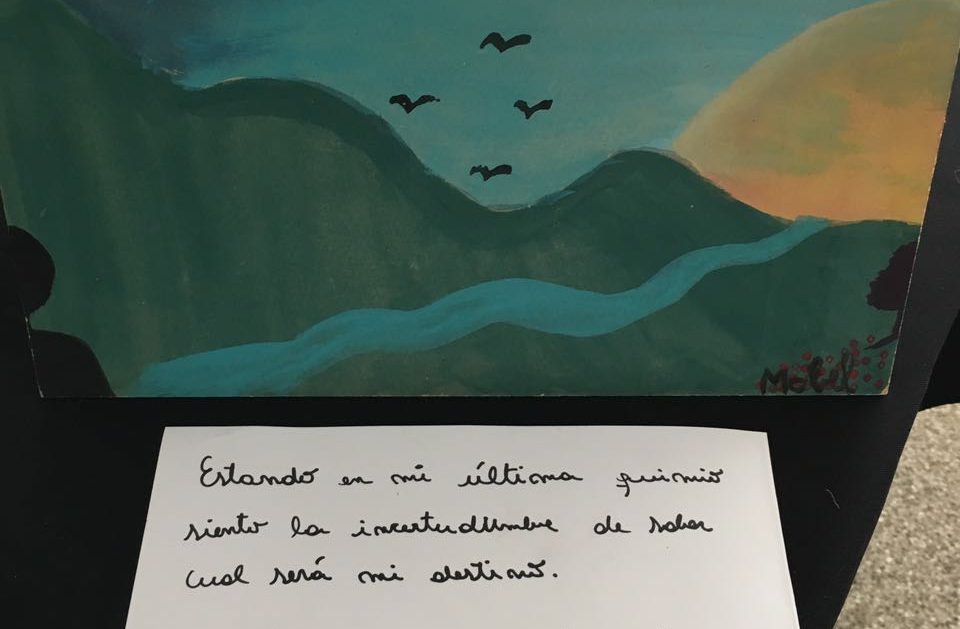 Motel
Estando en mi última quimio
siento la incertudumbre de saber
cual será mi destino.